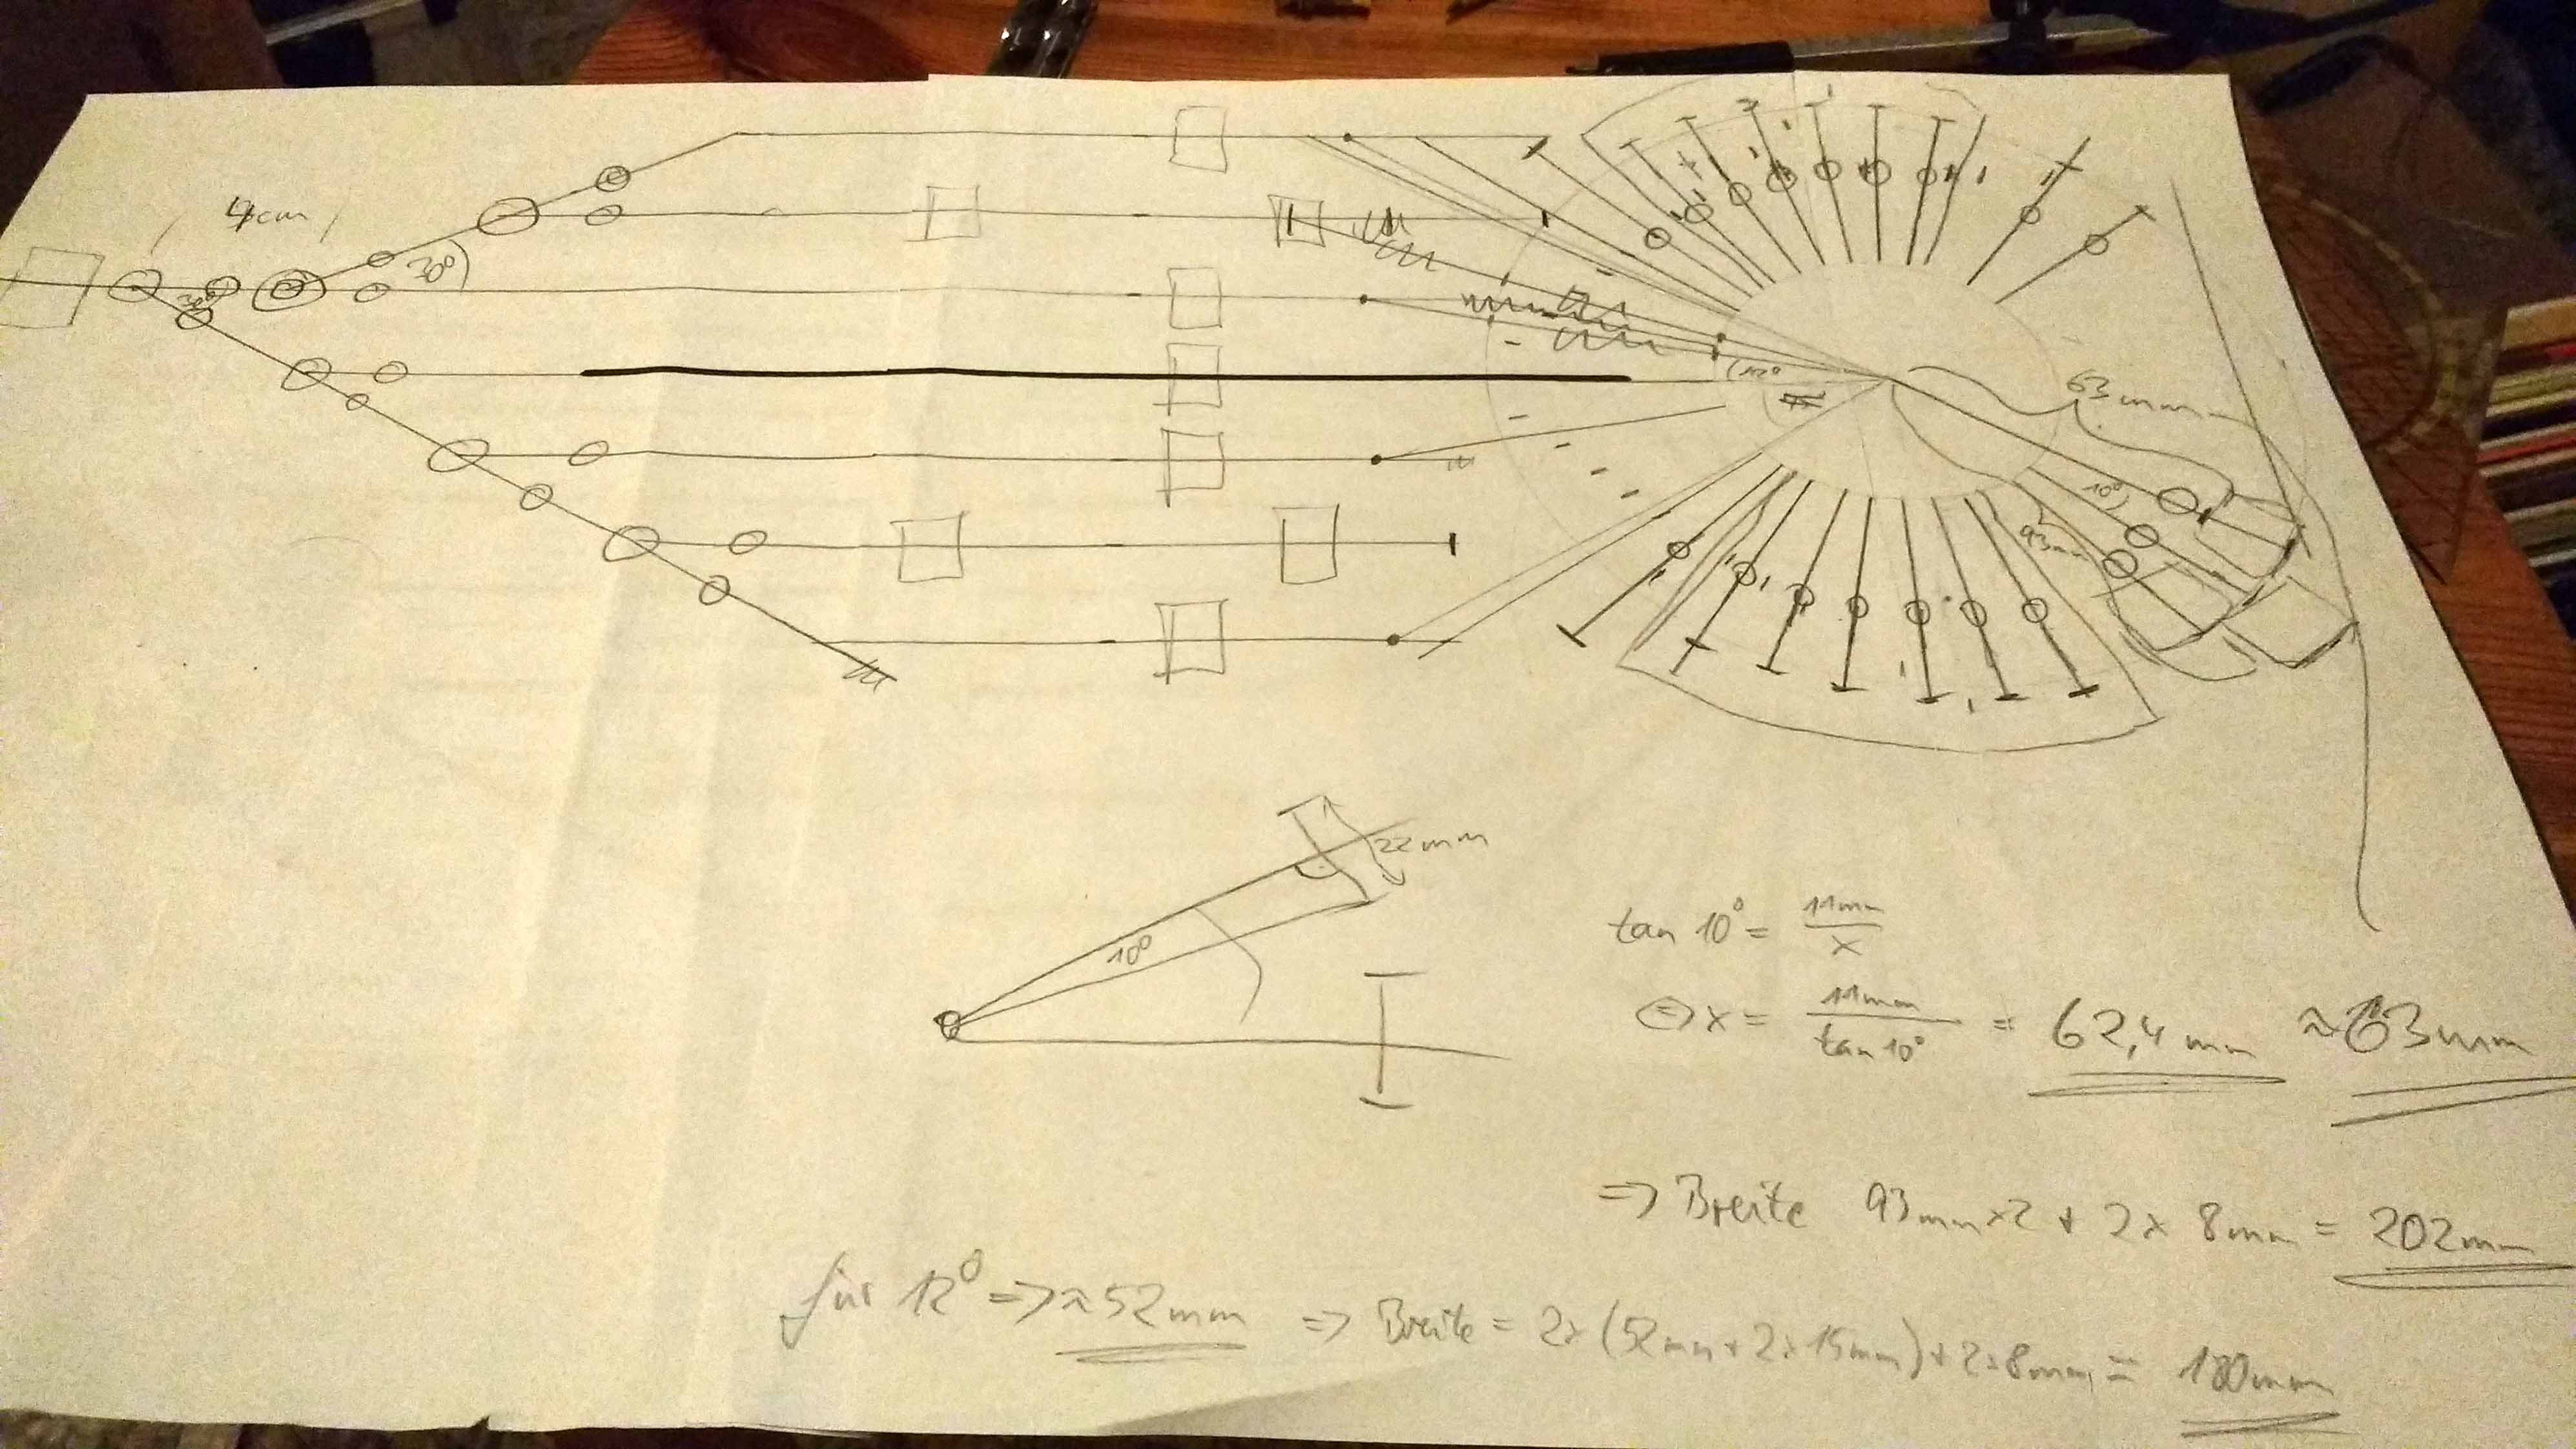 4cm
30°
30°
63mm
12°
10°
93mm
22mm
10°
tan 10° = 11mm / x
⇔ x = 11mm / tan 10° = 62,4 mm ≈ 63mm
=> Breite 93mm x 2 + 2 x 8mm = 202mm
für 12° => ≈ 52mm => Breite = 2x (52mm + 2x15mm) + 2x8mm = 180mm